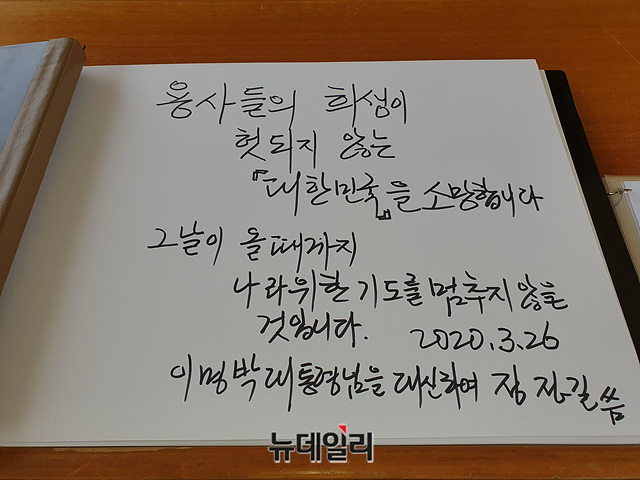 용사들의 희생이
헛되지 않는
『대한민국』을 소망합니다
그날이 올때까지
나라위한 기도를 멈추지 않을
것입니다. 2020.3.26
이명박대통령님을 대신하여 장 길 씀
뉴데일리